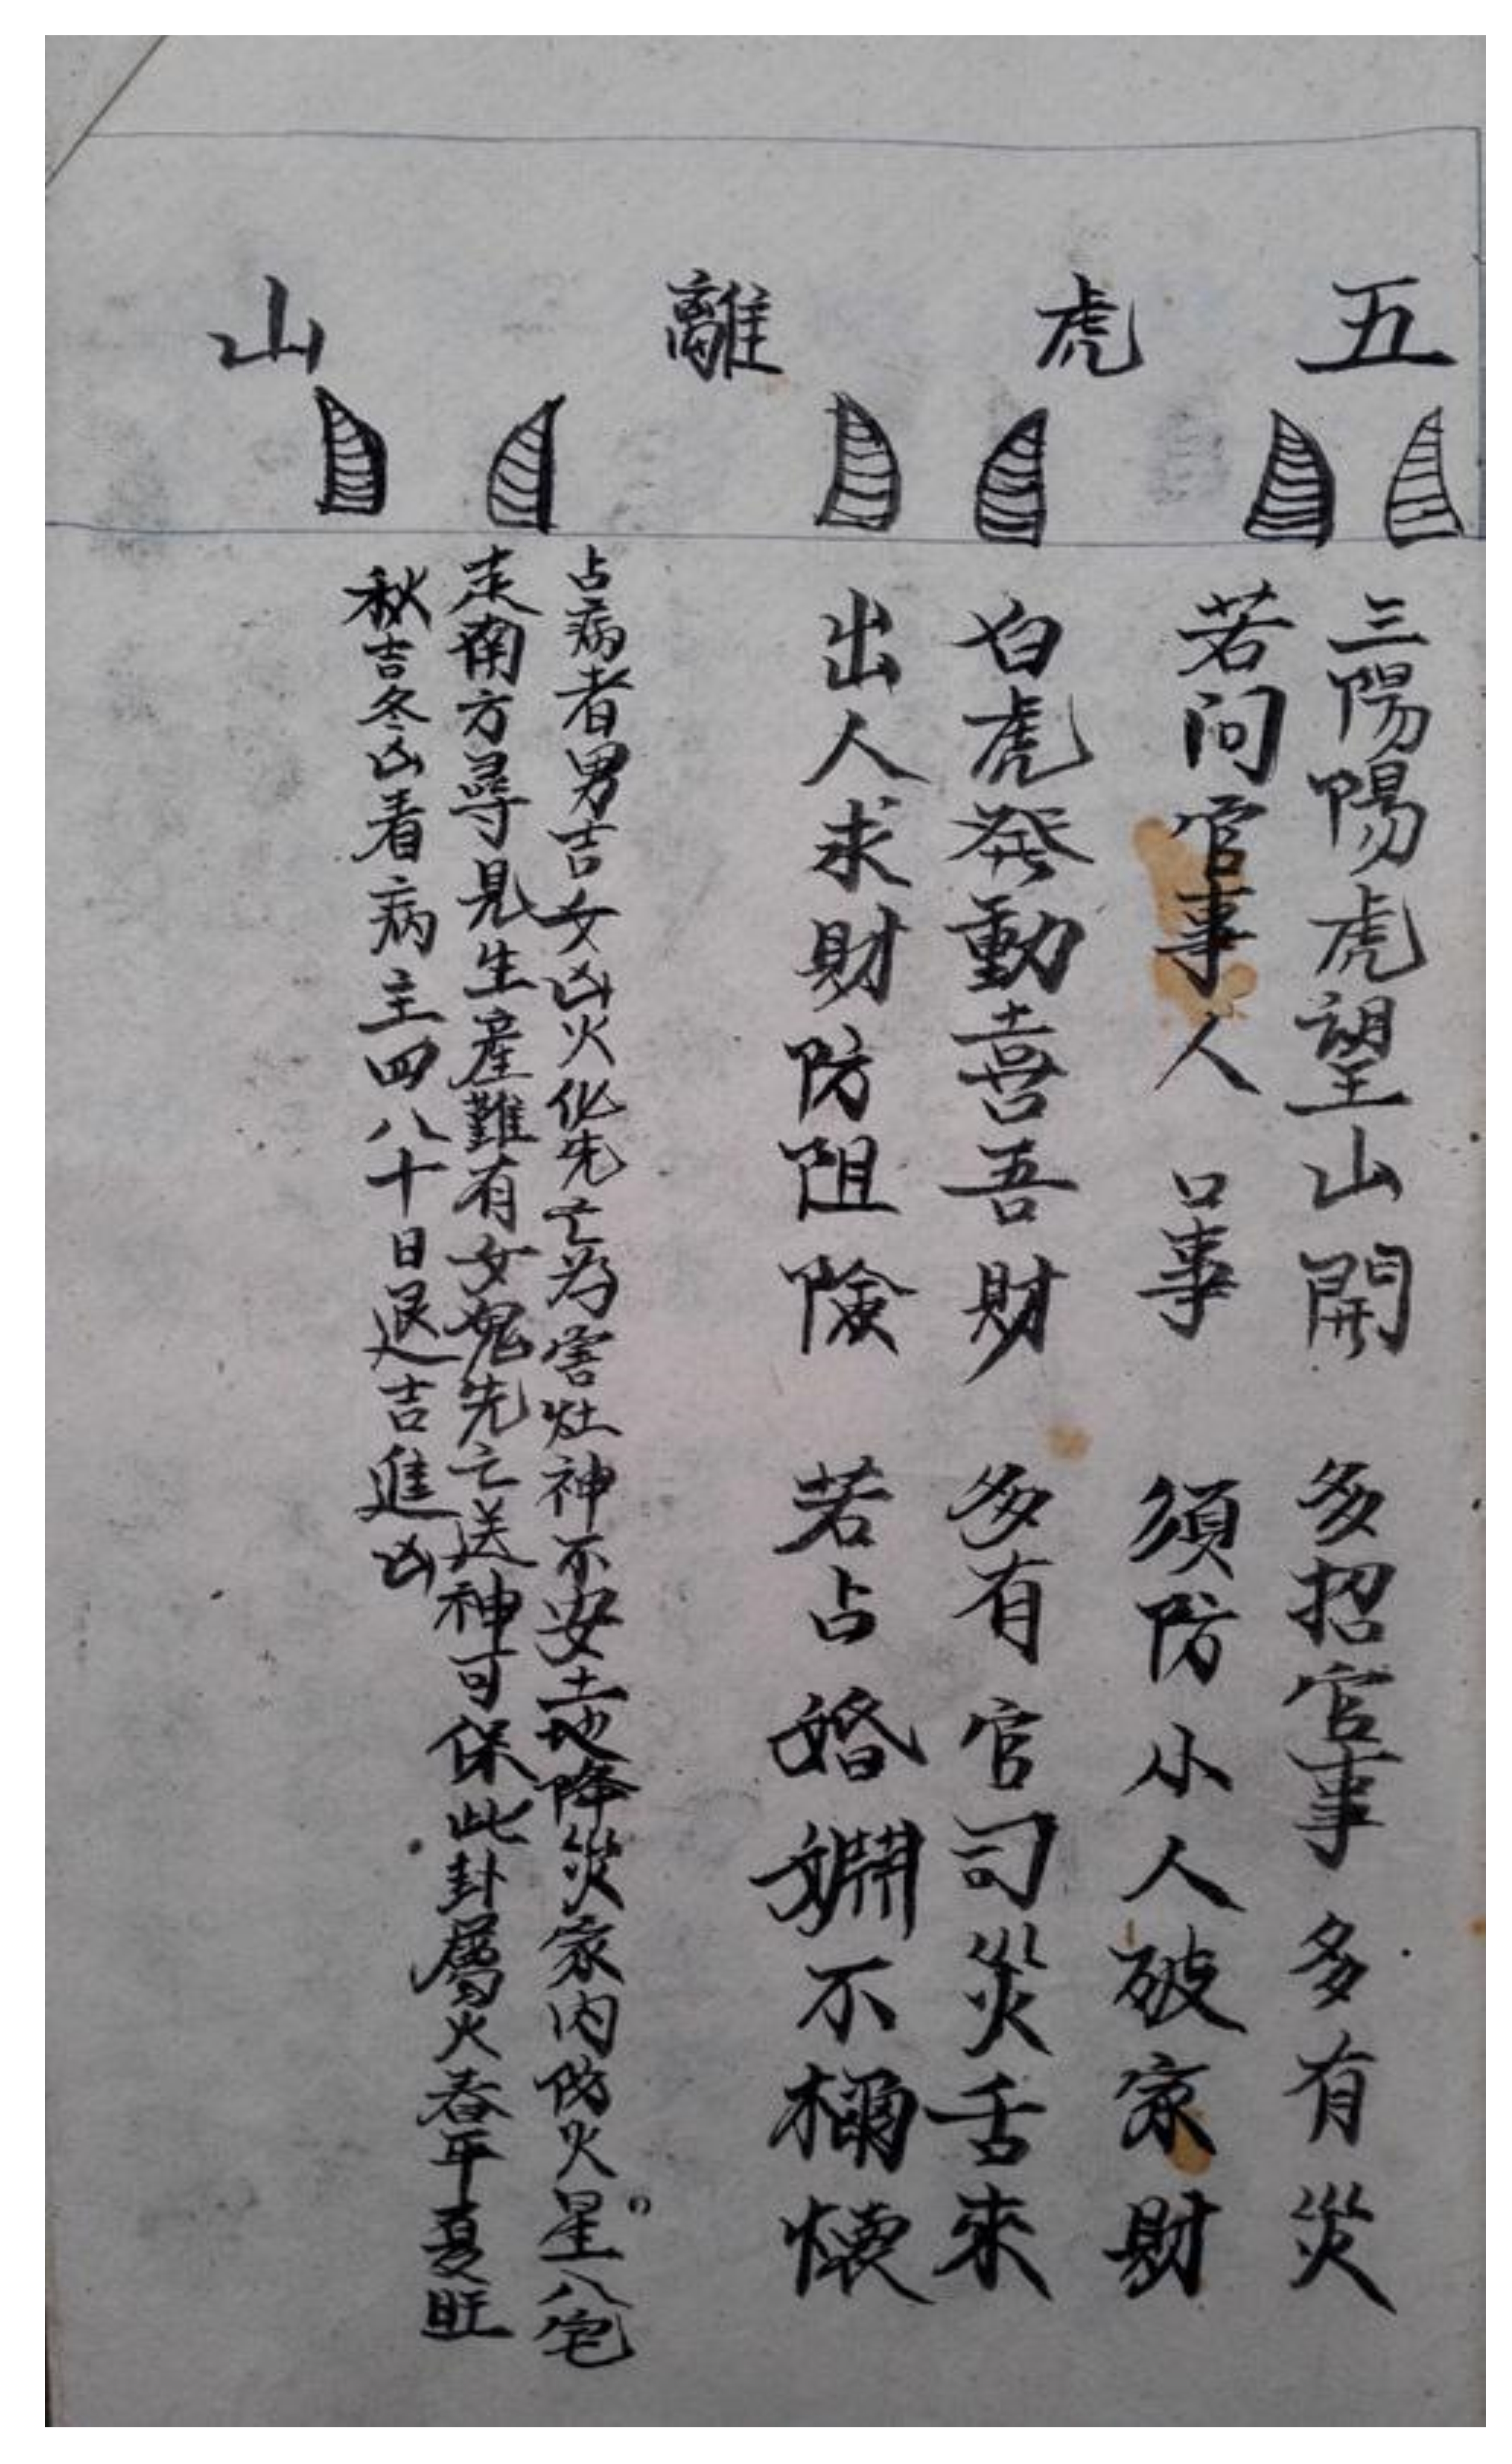 五虎離山
三陽陽虎望山開 多招官事多有災
若问官事人口事 須防小人破家財
白虎発動喜吾財 多有官司災舌來
出人求財防阻険 若占婚姻不稱懐
占病者男吉女凶火化先亡為害灶神不安土地降災家内防火星入宅
走南方尋見生產難有女鬼先亡送神可保此卦屬火春平夏旺
秋吉冬凶看病主四八十日退吉進凶